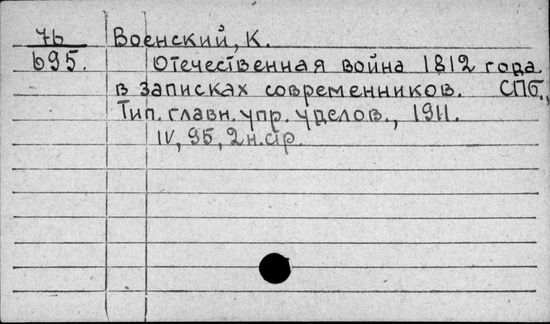 76 Военский, К.
695. Отечественная война 1812 года
в записках современников. СПб.,
Тип. главн. упр. уделов., 1911.
IV, 95, 2 н. стр.